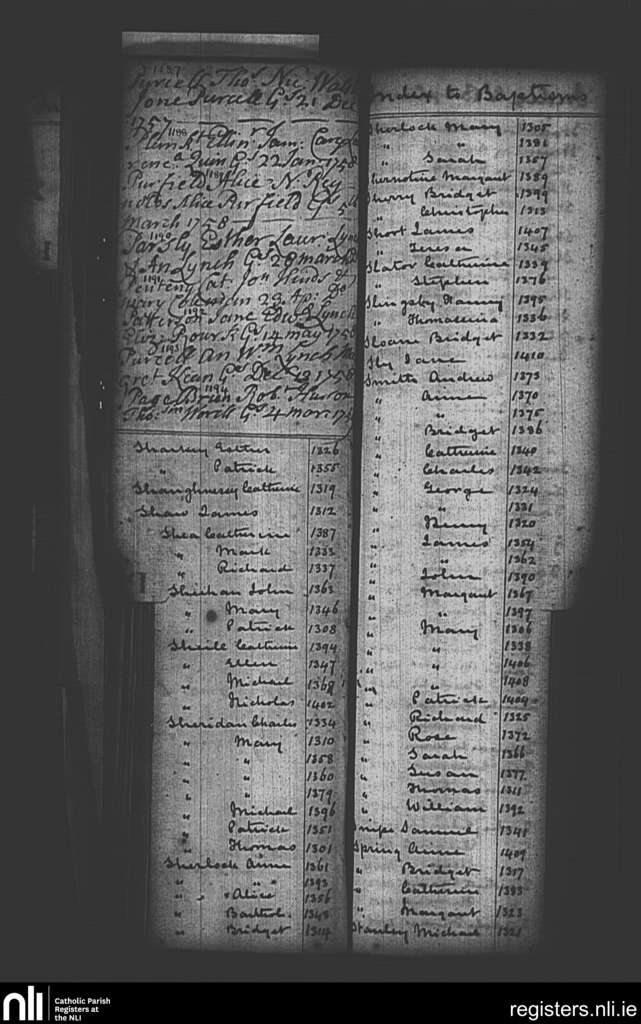 1187
Purcell Thos. Nic: Walsh
Jone Purcell Gs. 21 Dec
1757
1188
Ellin Jam:
Quin Gs. 22 Jan: 1758
1189
Purfield Alice N: Rey-
nolds Alice Purfield Gs. 5th
March 1758
1190
Esther Laur: Lynch
& An Lynch Gs. 28 march
1191
at Jon. Hinds &
23 Ap:
1192
Patterson Jane Edwd. Lynch
Eliz: Rourk Gs. 14 may 1758
1193
Purcell An Wm. Lynch
gret Kean Gs. Dec 13 1758
1194
Page Brian Robt. Huson
Gs. 4 mar:
Sharkey Esther 1326
" Patrick 1355
Shaughnessy Catherine 1319
Shaw James 1312
Shea Catherine 1387
" Mark 1333
" Richard 1337
Sheehan John 1363
" Mary 1346
" Patrick 1308
Sheile Catherine 1394
" Ellen 1347
" Michael 1368
" Nicholas 1402
Sheridan Charles 1334
" Mary 1310
" " 1358
" " 1360
" " 1379
" Michael 1396
" Patrick 1351
" Thomas 1301
Sherlock Anne 1361
" " 1393
" Alice 1356
" Barthol. 1348
" Bridget 1314
Index to Baptisms
Sherlock Mary 1305
" " 1381
" Sarah 1357
Margaret 1389
Sherry Bridget 1399
" Christopher 1313
Short James 1407
" Teresa 1345
Slator Catherine 1339
" Stephen 1376
Slingsby Fanny 1395
" Thomasine 1336
Sloane Bridget 1332
Sly Jane 1410
Smith Andrew 1373
" Anne 1370
" " 1375
" Bridget 1386
" Catherine 1340
" Charles 1342
" George 1324
" " 1331
" Henry 1320
" James 1354
" " 1362
" John 1390
" Margaret 1367
" " 1397
" Mary 1306
" " 1338
" " 1406
" " 1408
" Patrick 1404
" Richard 1325
" Rose 1372
" Sarah 1366
" Susan 1377
" Thomas 1311
" William 1392
Snipe Samuel 1341
Spring Anne 1409
" Bridget 1317
" Catherine 1383
" Margaret 1323
Stanley Michael 1321
nli
Catholic Parish
Registers at
the NLI
registers.nli.ie